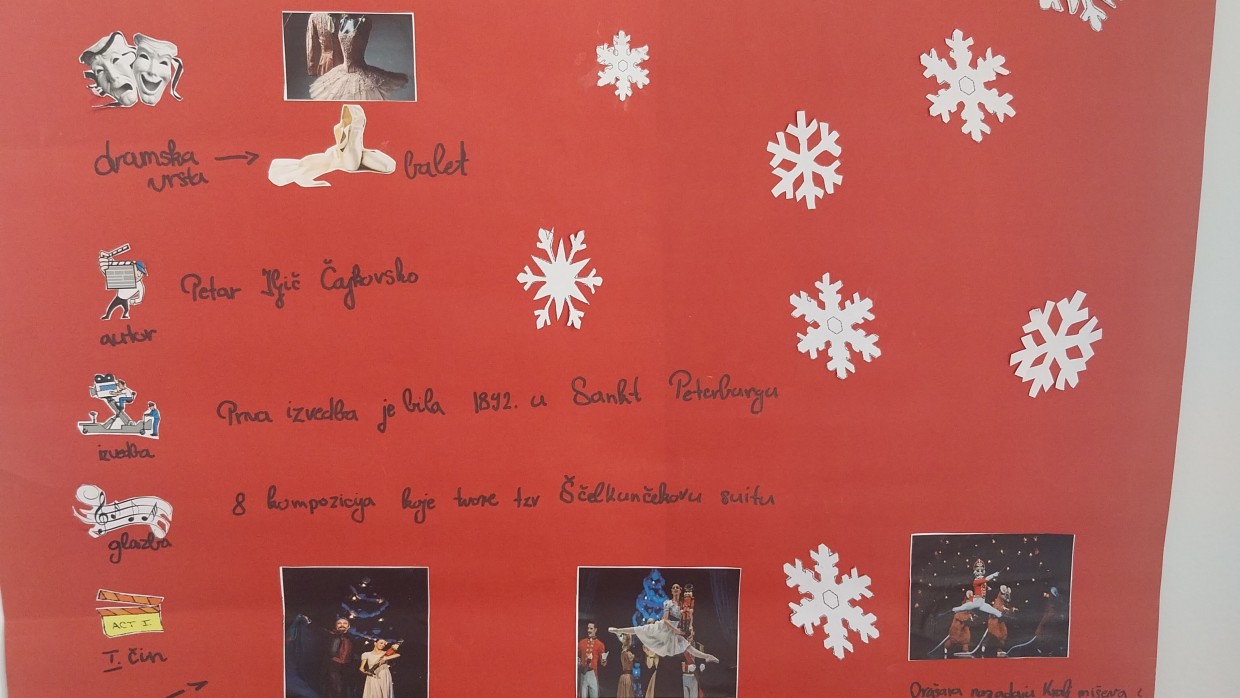 dramska
vrsta
balet
Petar Iljič Čajkovsko
autor
Prva izvedba je bila 1892. u Sankt Peterburgu
izvedba
8 kompozicija koje tvore tzv Ščelkunčekovu suitu
glazba
ACT I.
I. čin
Orašara napadaju Kralj miševa i